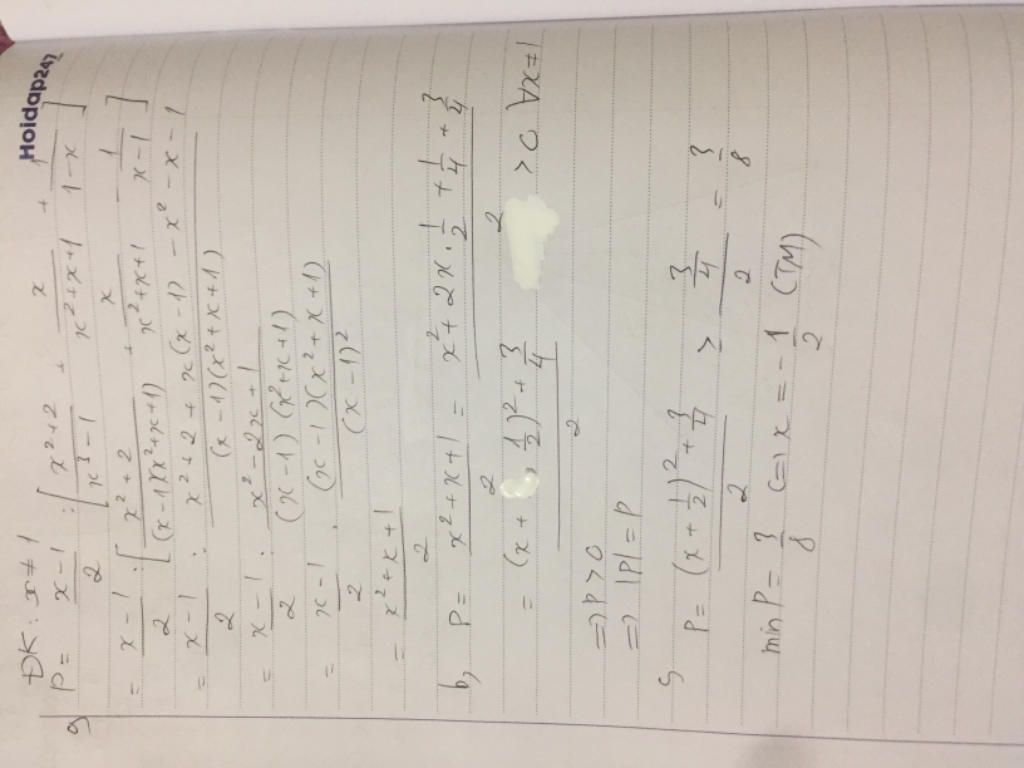 Hoidap247
a, ĐK: x ≠ 1
P = (x-1)/2 : [(x²+2)/(x³-1) + x/(x²+x+1) + 1/(1-x)]
= (x-1)/2 : [(x²+2)/((x-1)(x²+x+1)) + x/(x²+x+1) - 1/(x-1)]
= (x-1)/2 : (x²+2+x(x-1)-x²-x-1)/((x-1)(x²+x+1))
= (x-1)/2 : (x²-2x+1)/((x-1)(x²+x+1))
= (x-1)/2 . ((x-1)(x²+x+1))/(x-1)²
= (x²+x+1)/2
b, P = (x²+x+1)/2 = (x²+2x.1/2+1/4+3/4)/2
= ((x+1/2)²+3/4)/2 > 0 ∀x≠1
=> P>0
=> |P|=P
c, P = ((x+1/2)²+3/4)/2 ≥ (3/4)/2 = 3/8
min P = 3/8 <=> x = -1/2 (TM)